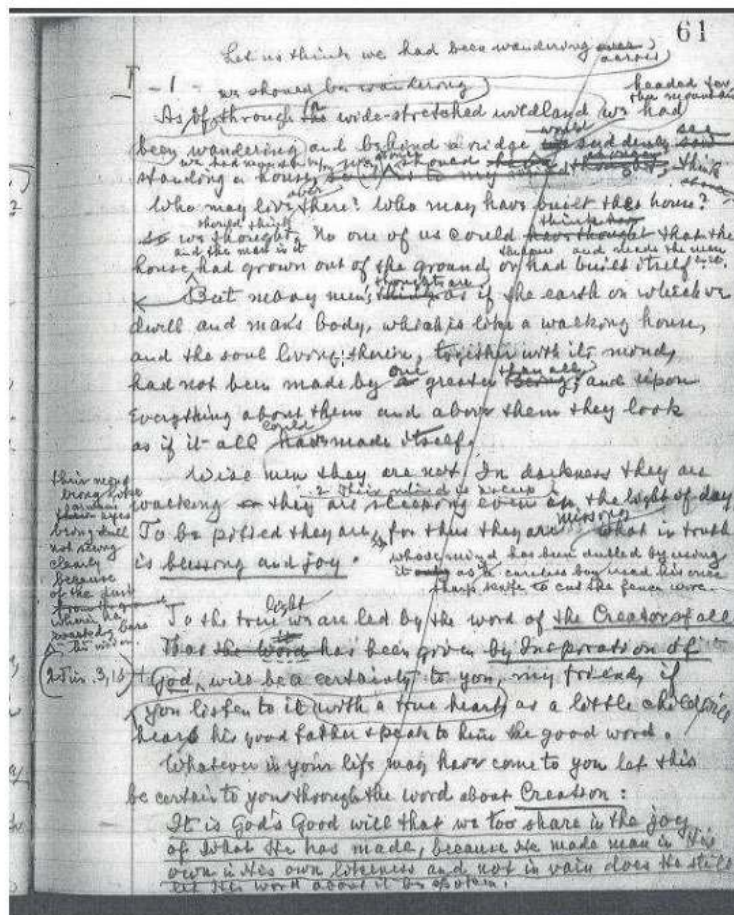 61
Let us think we had been wandering over across
I
- 1 - we should be wandering
headed for the mountain
As if through the wide-stretched wildland we had
been wandering and behind a ridge suddenly saw see
standing a house,
Who may live there? Who may have built the house?
should think
so we thought, No one of us could have thought that the
and the man in it
house, had grown out of the ground or had built itself
thoughts are
But many men's things as if the earth on which we
dwell and man's body, which is like a walking house,
and the soul living therein, together with its mind,
had not been made by a one greater being than all, and upon
Everything about them and above them they look
could
as if it all have made itself.
Wise men they are not. In darkness they are
2 Their mind is asleep
walking they are sleeping even in the light of day
To be pitied they are, for thus they are missing what in truth
is blessing and joy.
whose mind has been dulled by using
it only as a careless boy used his once
sharp knife to cut the fence wire.
their
eyes
being dull
not seeing
clearly
because
of the dust
light
To the true we are led by the word of the Creator of all
That the Word has been given by Inspiration of
2 Tim. 3,16
God, will be a certainty to you, my friend, if
you listen to it with a true heart, as a little child
hears his good father speak to him the good word.
Whatever in your life may have come to you let this
be certain to you through the word about Creation:
It is God's Good will that we too share in the joy
of What He has made, because He made man in His
own in His own likeness and not in vain does He still
let His word about it be spoken.